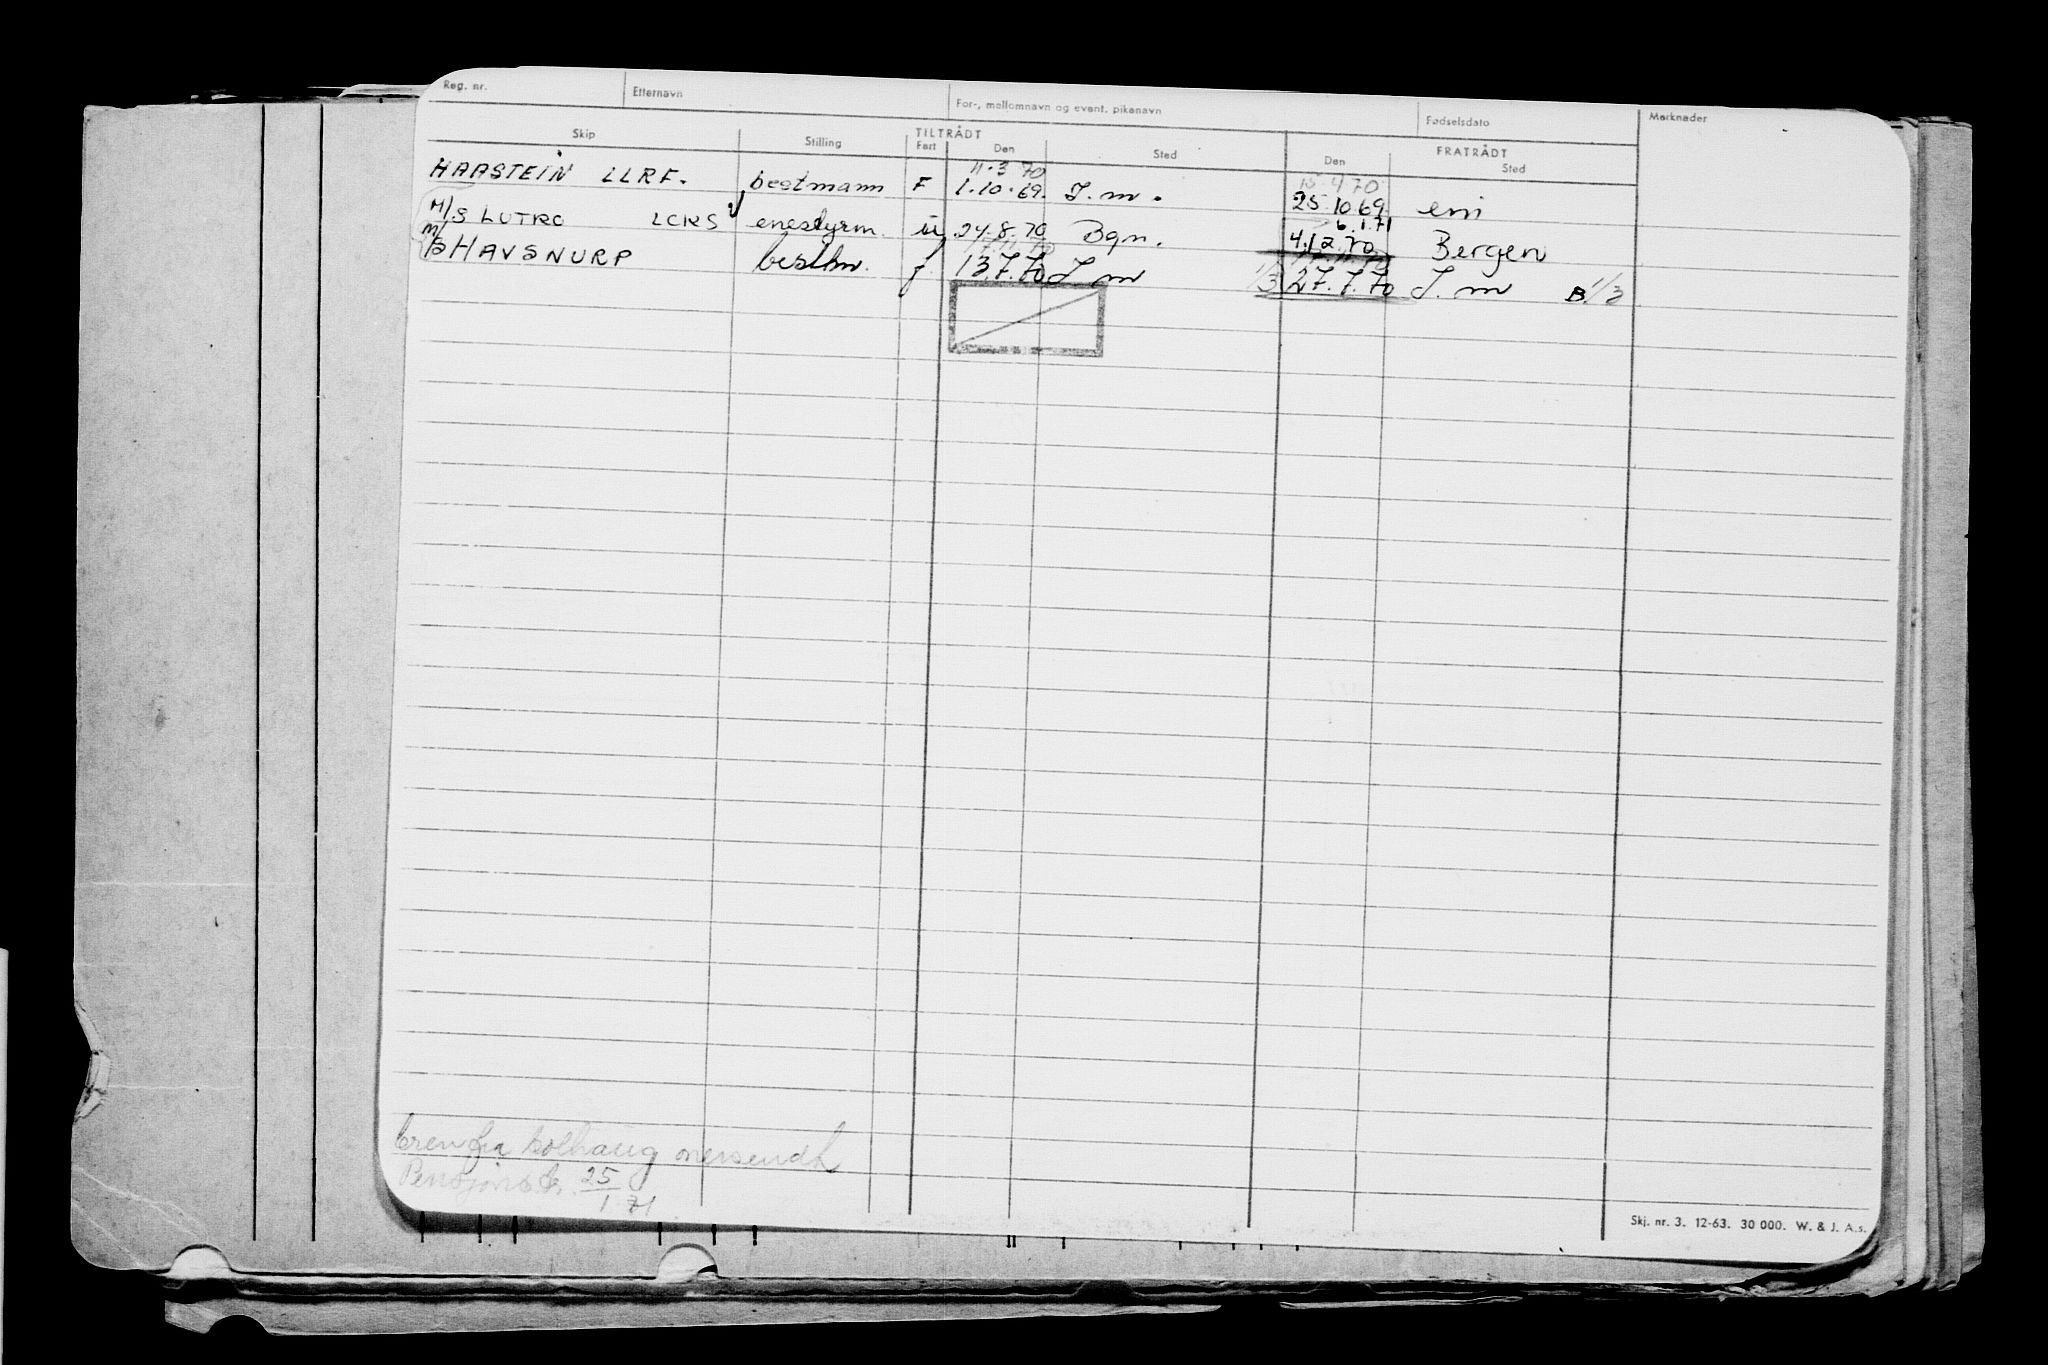 Reg. nr. Etternavn For-, mellomnavn og event. pikenavn Fødselsdato Merknader
TILTRÅDT FRATRÅDT
Skip Stilling Fart Den Sted Den Sted
11.3 70 15.4 70
HAASTEIN LLRF. bestmann F 1.10.69. I.m. 25.10 69
6.1.71
M/S LUTRO LCKS enestyrm. 24.8.70 Bgn. 4.12.70 Bergen
M/S HAVSNURP bestm. f 13.7.70 I.m 1/3 27.7.70 I.m B.1/3
brev fra Solhaug oversendt
Pensjons.tr. 25/1 71
Skj. nr. 3. 12-63. 30 000. W. & J. A.s.